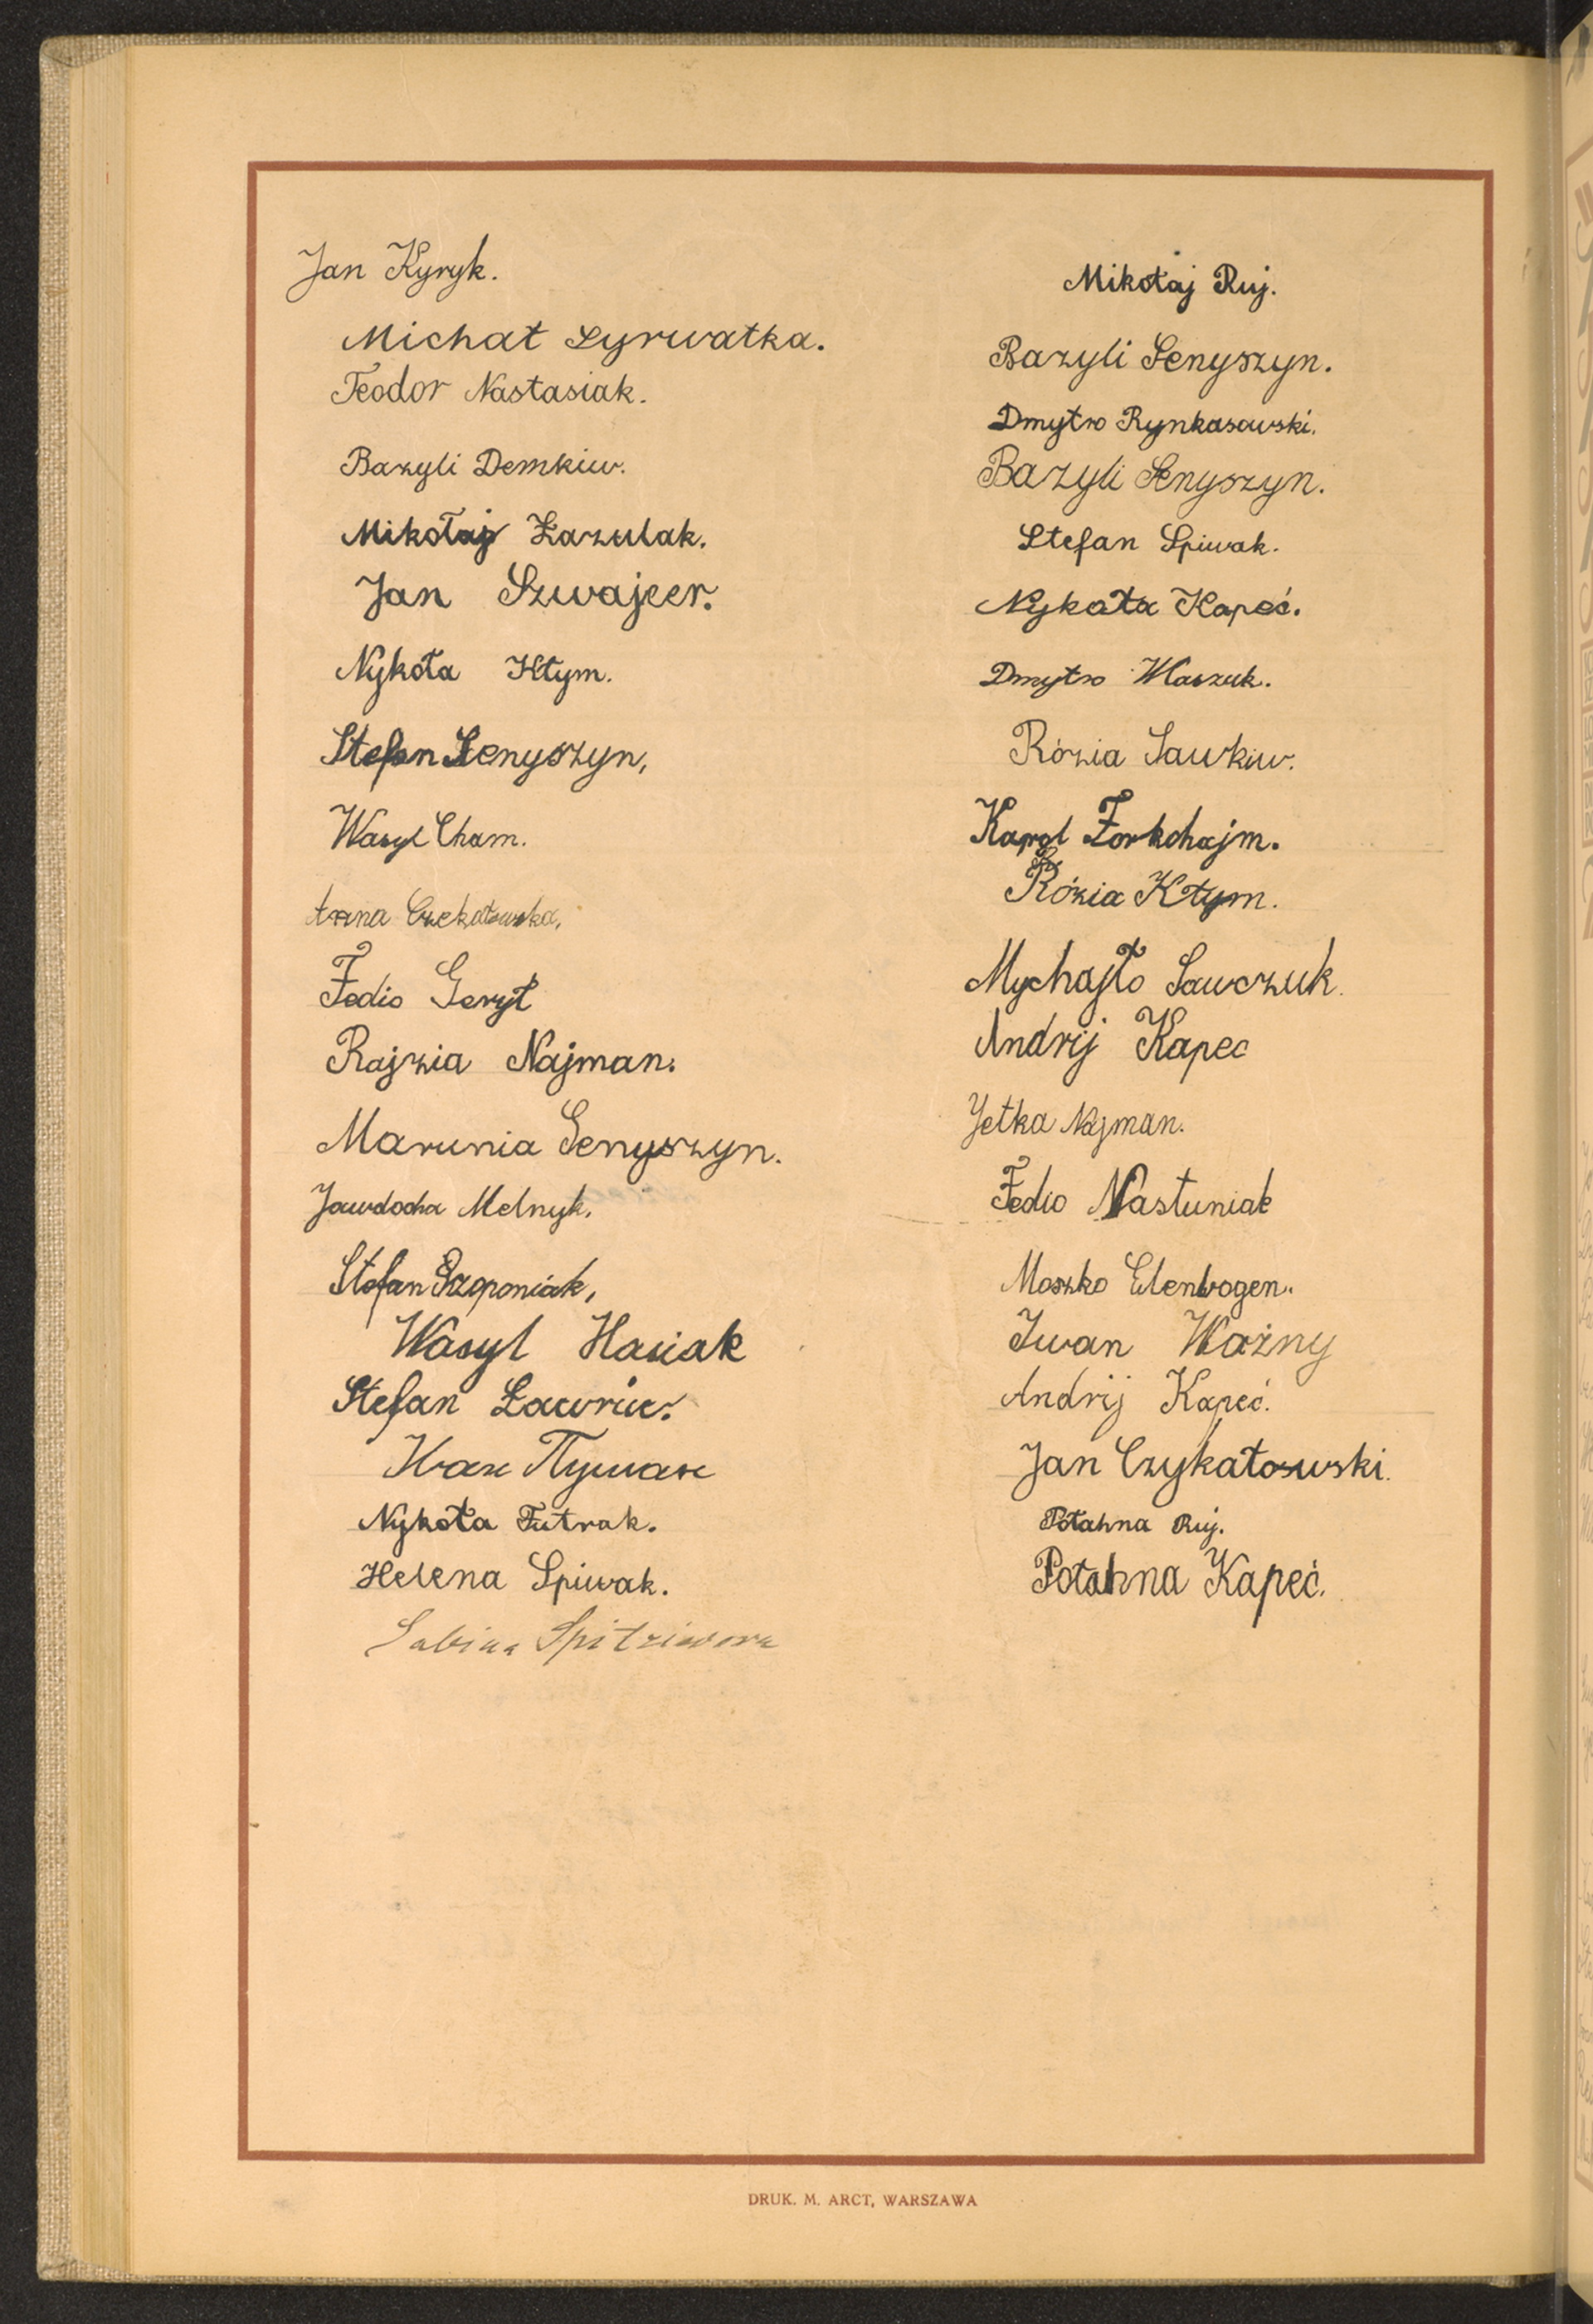 Jan Kyryk.
Michał Syrwatka.
Teodor Nastasiak.
Bazyli Demkiw.
Mikołaj Łazulak.
Jan Szwajcer.
Nykoła Kłym.
Stefan Senyszyn,
Wasyl Cham.
Anna Czekałowska,
Fedio Gerył
Rajzia Najman.
Marunia Senyszyn.
Jawdocha Melnyk.
Stefan Szoponiak,
Wasyl Hasiak
Stefan Ławriw.
Иван
Nykoła Futrak.
Helena Spiwak.
Sabina
Mikołaj Ruj.
Bazyli Senyszyn.
Dmytro Rynkasowski.
Bazyli Senyszyn.
Stefan Spiwak.
Nykoła Kapeć.
Dmytro Waszuk.
Rózia Sawkiw.
Karol Forkohajm.
Rózia Kłym.
Mychajło Sawczuk.
Andrij Kapec
Jetka Najman.
Fedio Nastuniak
Moszko Elenbogen.
Iwan Ważny
Andrij Kapeć.
Jan Czykałowski.
Połahna Ruj.
Połahna Kapeć.
DRUK. M. ARCT, WARSZAWA